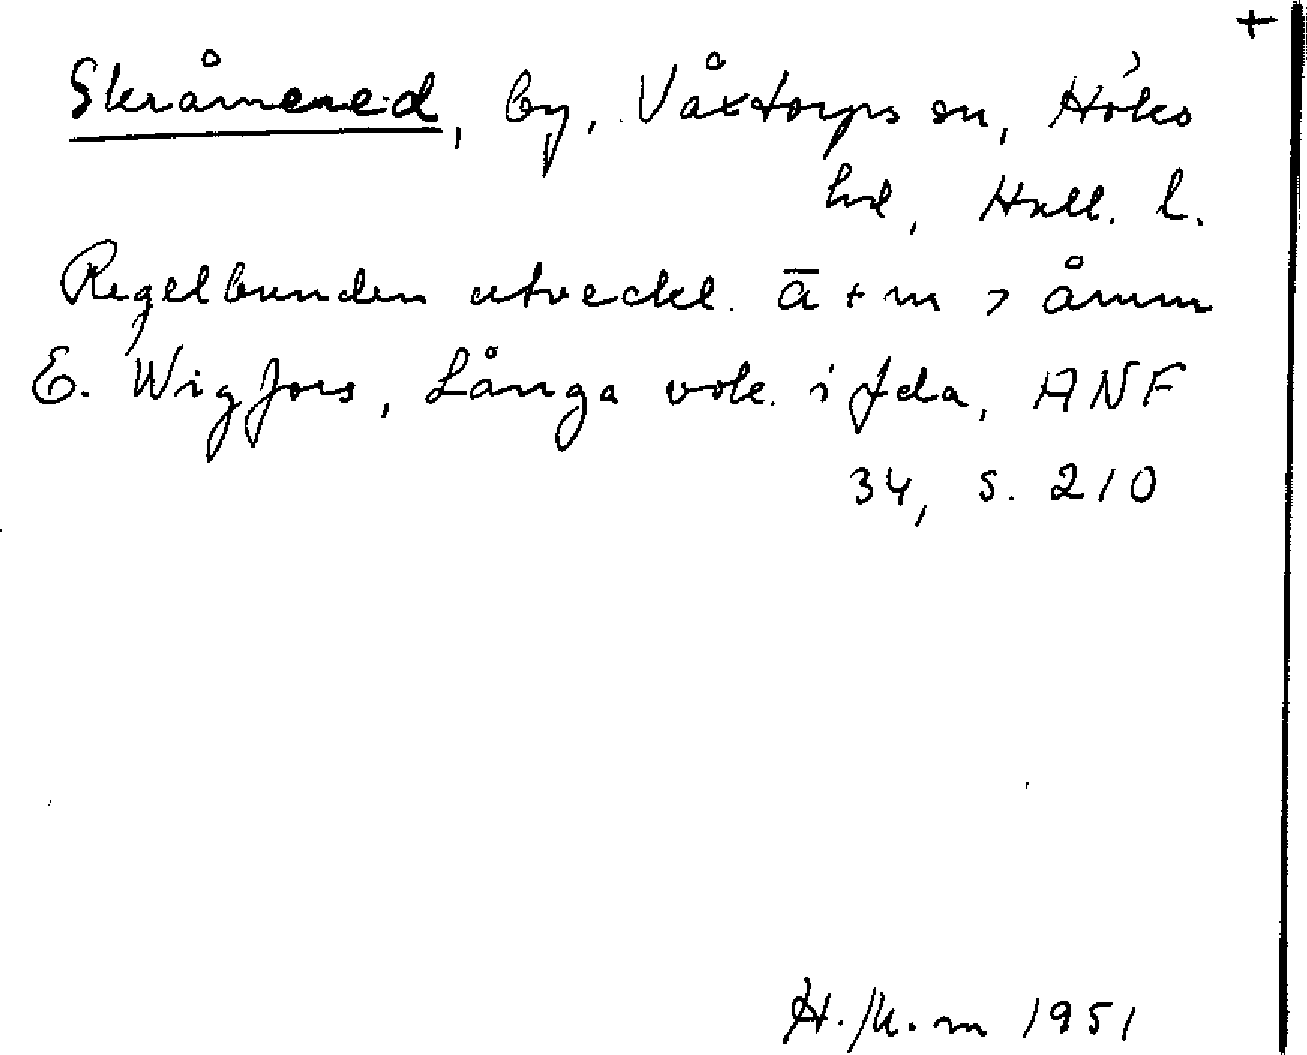 +
Skråmered, by, Våxtorps sn, Höks
hd, Hall. l.
Regelbunden utveckl. ā + m > åmm
E. Wigfors, Långa vok. i fda, ANF
34, s. 210
1951